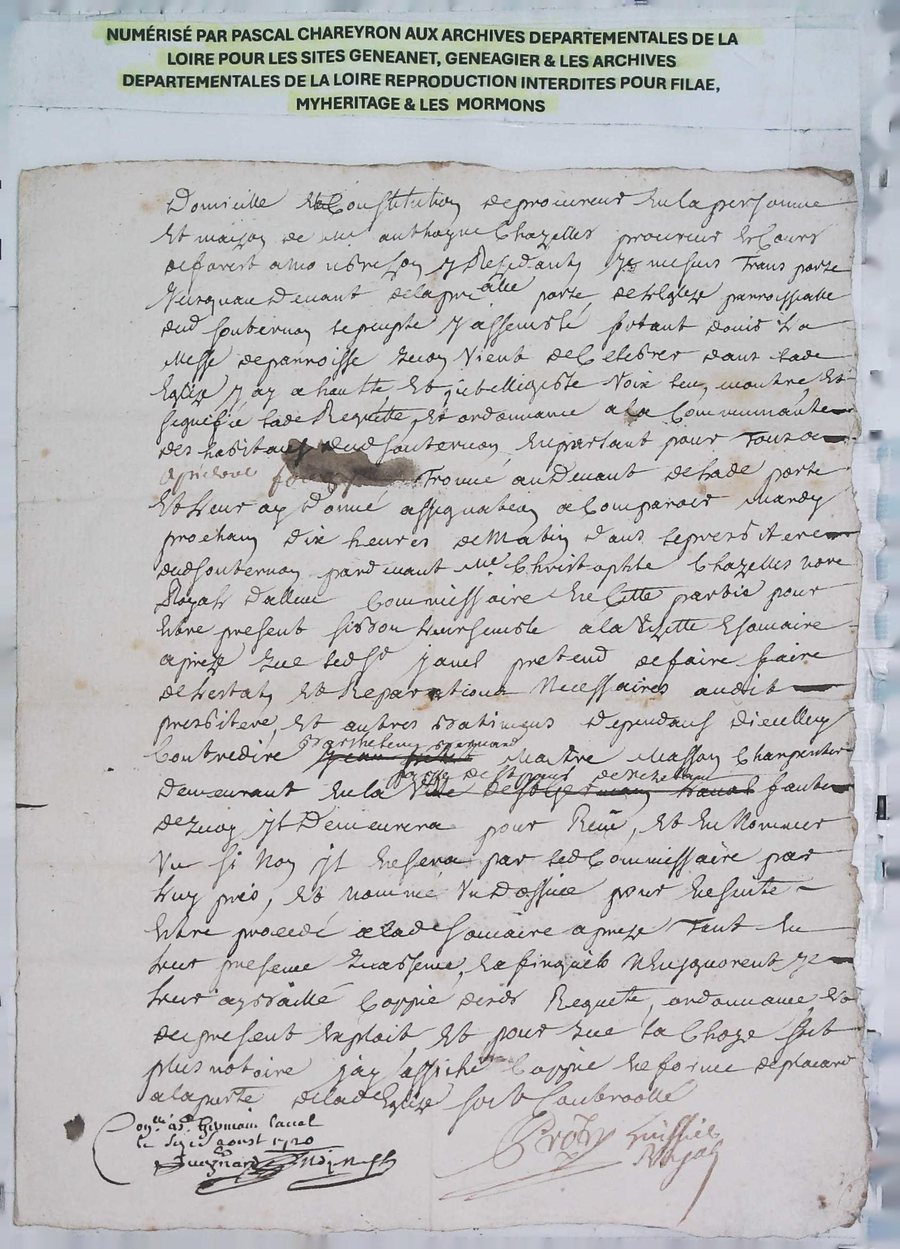 NUMÉRISÉ PAR PASCAL CHAREYRON AUX ARCHIVES DEPARTEMENTALES DE LA
LOIRE POUR LES SITES GENEANET, GENEAGIER & LES ARCHIVES
DEPARTEMENTALES DE LA LOIRE REPRODUCTION INTERDITES POUR FILAE,
MYHERITAGE & LES MORMONS
Domicille et Constitution de procureur en la personne
et maizon de Me anthoyne Chazelles procureur es Cours
de forest a monbrezon y Residant, je me suis transporté
jusquau devant de la prialle porte de lEglize parroissialle
dud souternon le peuple y assemblé sortant douir La
Messe de parroisse quon vient de Celebrer dans lade
Eglize jay a haulte et intelligible voix leu, montré et
signifié lade Requête, et ordonnance a la Communauté
des habitans dud souternon en parlant pour tous a
trouvé au devant de lade porte
et leur ay donné assignation a Comparoir mardy
prochain dix heures de Matin dans le presbitere
dud souternon pardevant Me Christophle Chazelles nore
Royal dallieu Commissaire en Cette partie pour
estre present si bon leur semble a la visitte somaire
apreze que led Sr javel pretend de faire faire
de lestat, et Reparations Necessaires audit
presbitere, et autres batimens dependans dicelluy
Contredire Barthelemy Maitre Masson Charpentier
demeurant en la de St faute
de quoy il demeurera pour Reuë, et en Nommer
un si Non il en sera par led Commissaire par
luy pris, et nommé d'office pour en suite
estre procedé a lade somaire apreze tant en
leur presence quabsence, et affin quils nen ignorent je
leur ay baillé Coppie desds Requete, ordonnance et
du present exploit et pour que la Choze soit
plus notoire jay affiché Coppie en forme de placard
a la porte de lade Eglize
huissier
Royal
Conlle a St Germain Laval
le aoust 1720